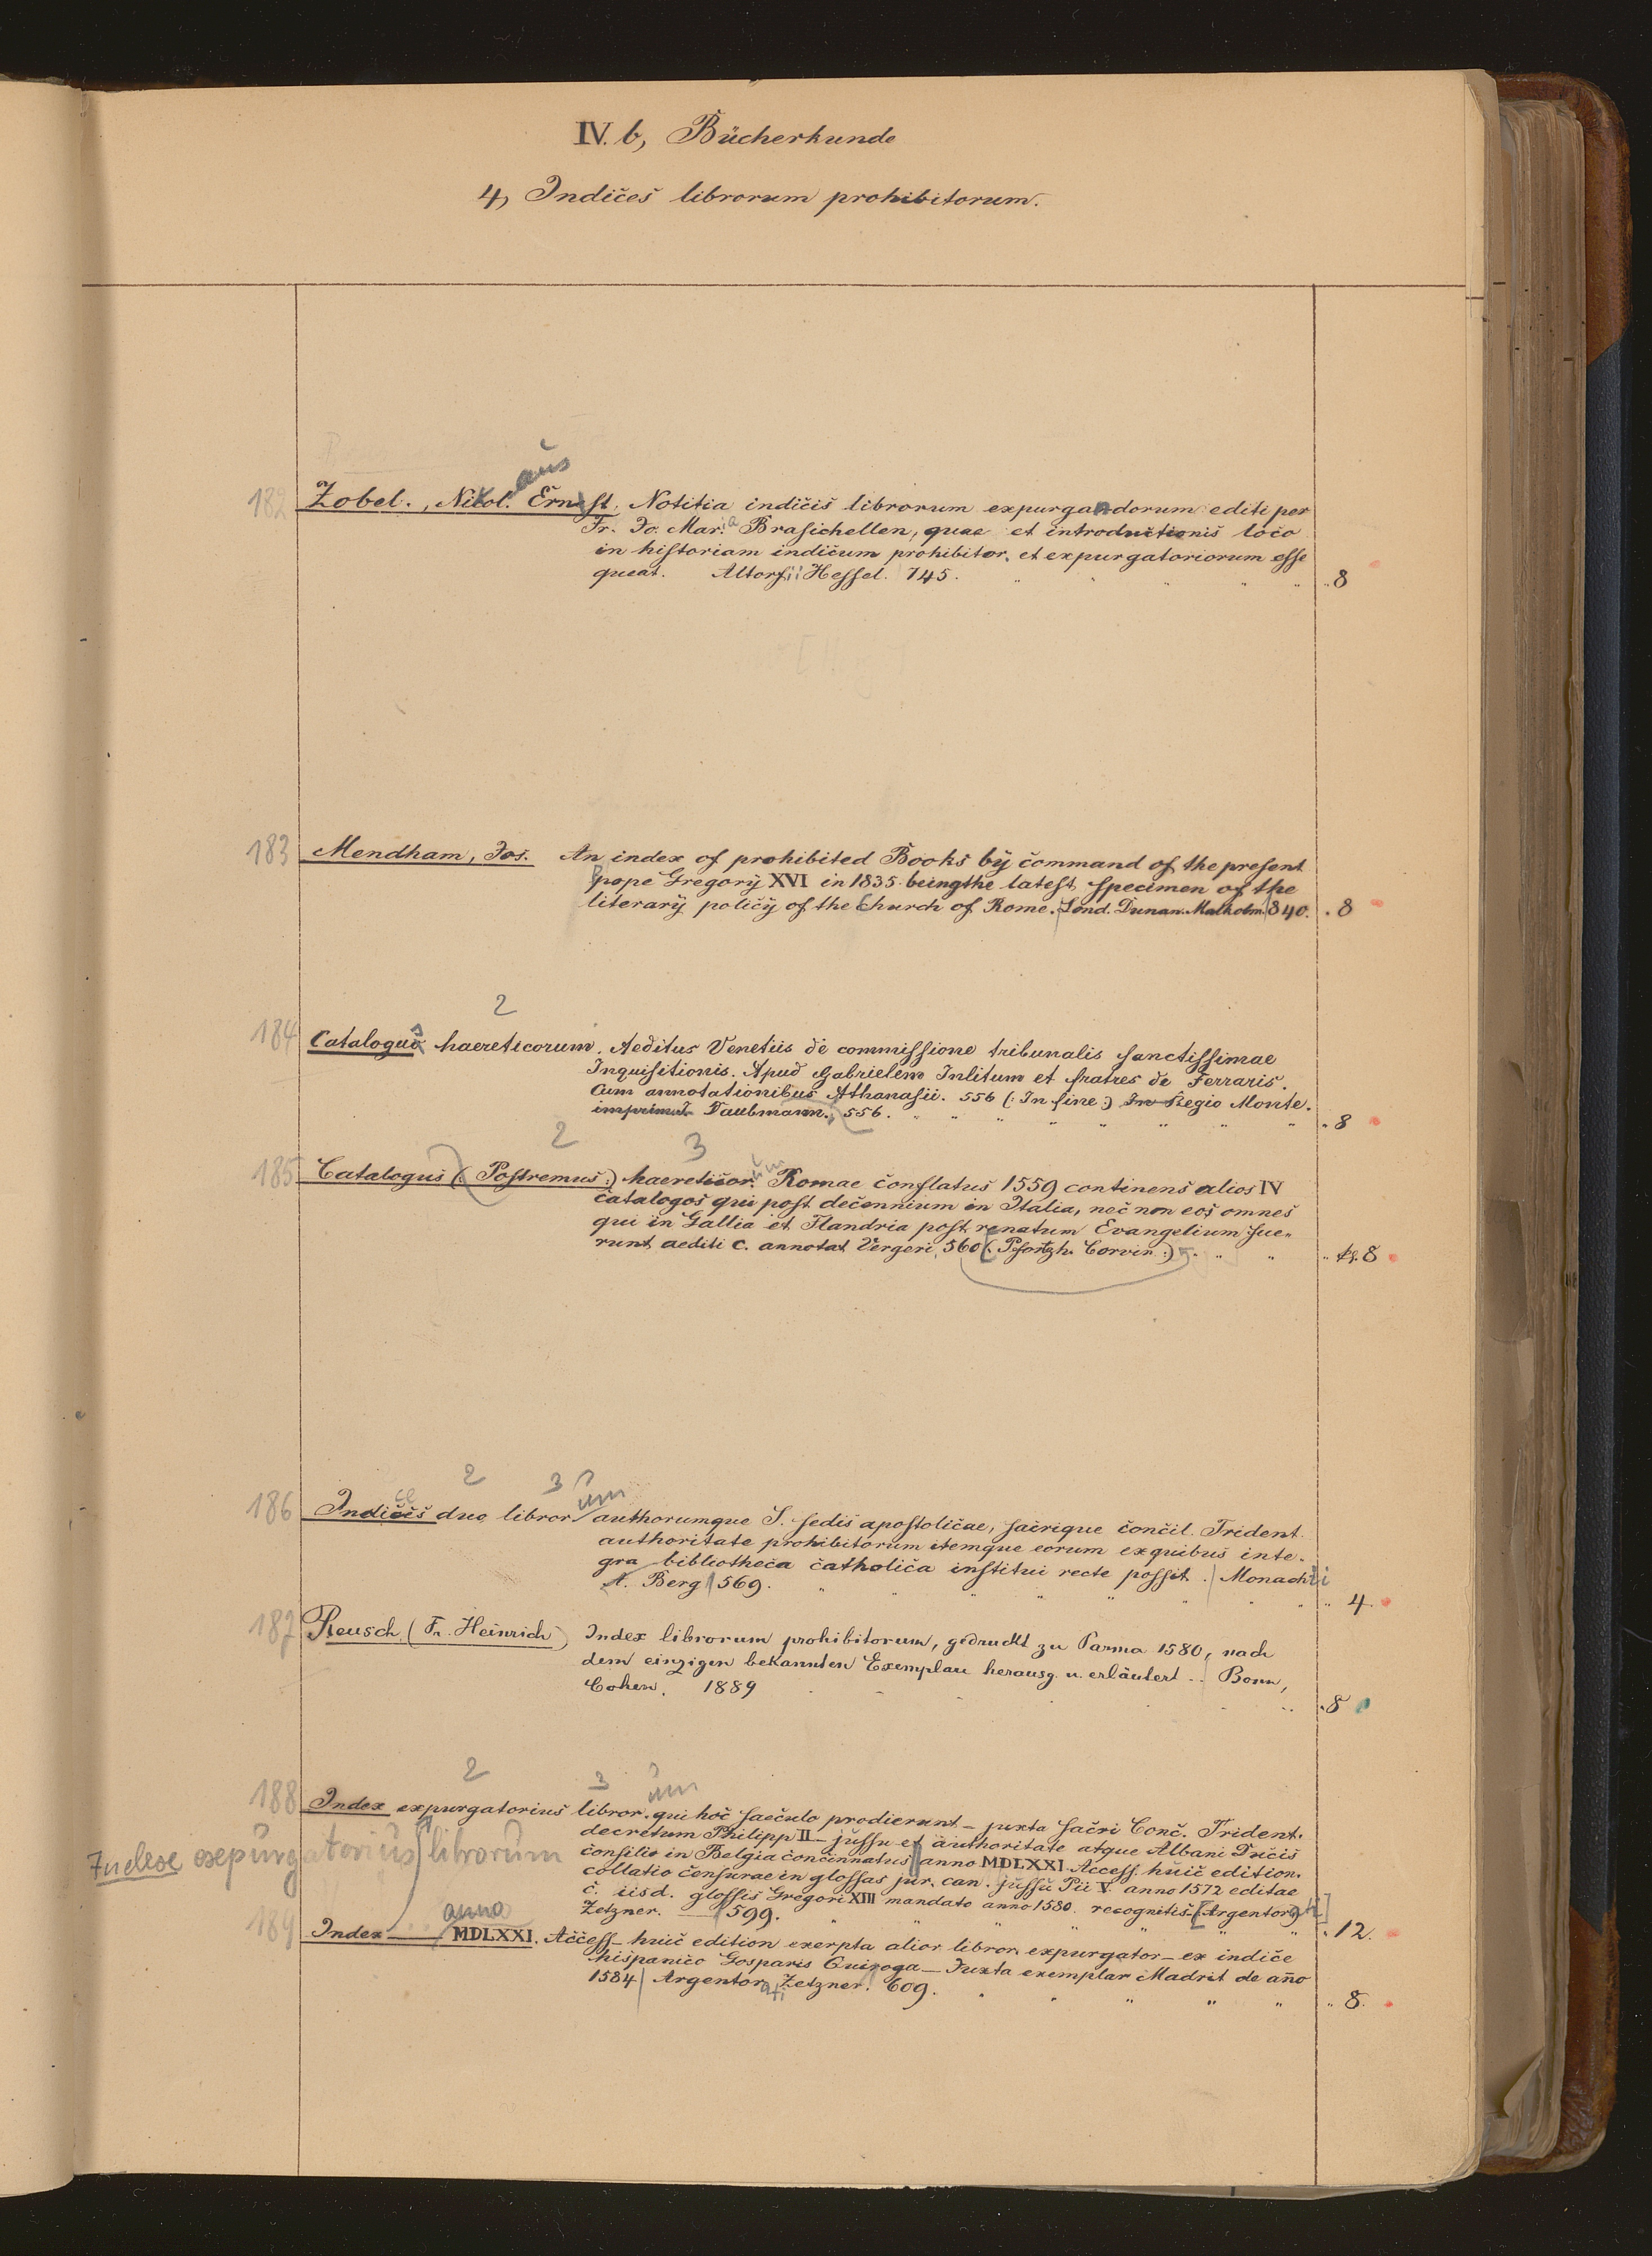 IV. b, Bücherkunde
4, Indices librorum prohibitorum.
aus
182 Zobel., Nikol. Ernst. Notitia indicis librorum expurgandorum editi per
Fr. Jo. Maria Brasichellen, quae et introductionis loco
in historiam indicum prohibitor. et expurgatoriorum esse
queat. Altorfii Hessel. 745. 8
183 Mendham, Jos. An index of prohibited Books by command of the present
pope Gregory XVI in 1835 being the latest specimen of the
literary policy of the Church of Rome. Lond. Dunan Malholm 840. 8
2
184 Catalogus haereticorum. Aeditus Venetiis de commissione tribunalis sanctissimae
Inquisitionis. Apud Gabrielem Inlitum et fratres de Ferraris.
Cum annotationibus Athanasii. 556 (: In fine :) In Regio Monte.
Taubmann. 556. 8
2 3
185 Catalogus (: Postremus :) haereticor. um Romae conflatus 1559 continens alios IV
catalogos qui post decennium in Italia, nec non eos omnes
qui in Gallia et Flandria post renatum Evangelium fue-
runt aediti c. annotat Vergeri, 560 (: Pfortzh. Corvin :) kl. 8
2 3 um
186 Indices duo libror. authorumque S. sedis apostolicae, sacrique concil. Trident.
authoritate prohibitorum itemque eorum ex quibus inte-
gra bibliotheca catholica institui recte possit. Monachii
A. Berg 569. 4.
187 Reusch (Fr. Heinrich) Index librorum prohibitorum, gedruckt zu Parma 1580, nach
dem einzigen bekannten Exemplar herausg. u. erläutert .. Bonn,
Cohen. 1889 8
2 3 um
188 Index expurgatorius libror. qui hoc saeculo prodierunt _ juxta sacri Conc. Trident.
decretum Philipp II _ jussu et authoritate atque Albani Ducis
consilio in Belgia concinnatus anno MDLXXI. Access. huic edition.
collatio censurae in glossas jur. can. jussu Pii V. anno 1572 editae
c. iisd. glossis Gregori XIII mandato anno 1580. recognitis [Argentorati]
Zetzner. 599. 12.
Index expurgatorius librorum
anno
189 Index MDLXXI. Access _ huic edition exerpta alior libror. expurgator _ ex indice
hispanico Gosparis Quiroga _ Juxta exemplar Madrit de año
1584 Argentorati Zetzner. 609. 8.